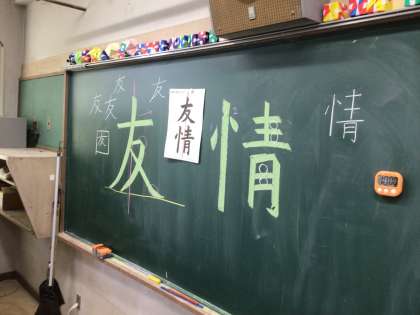 友
友 友 友
因
友情
友情
情